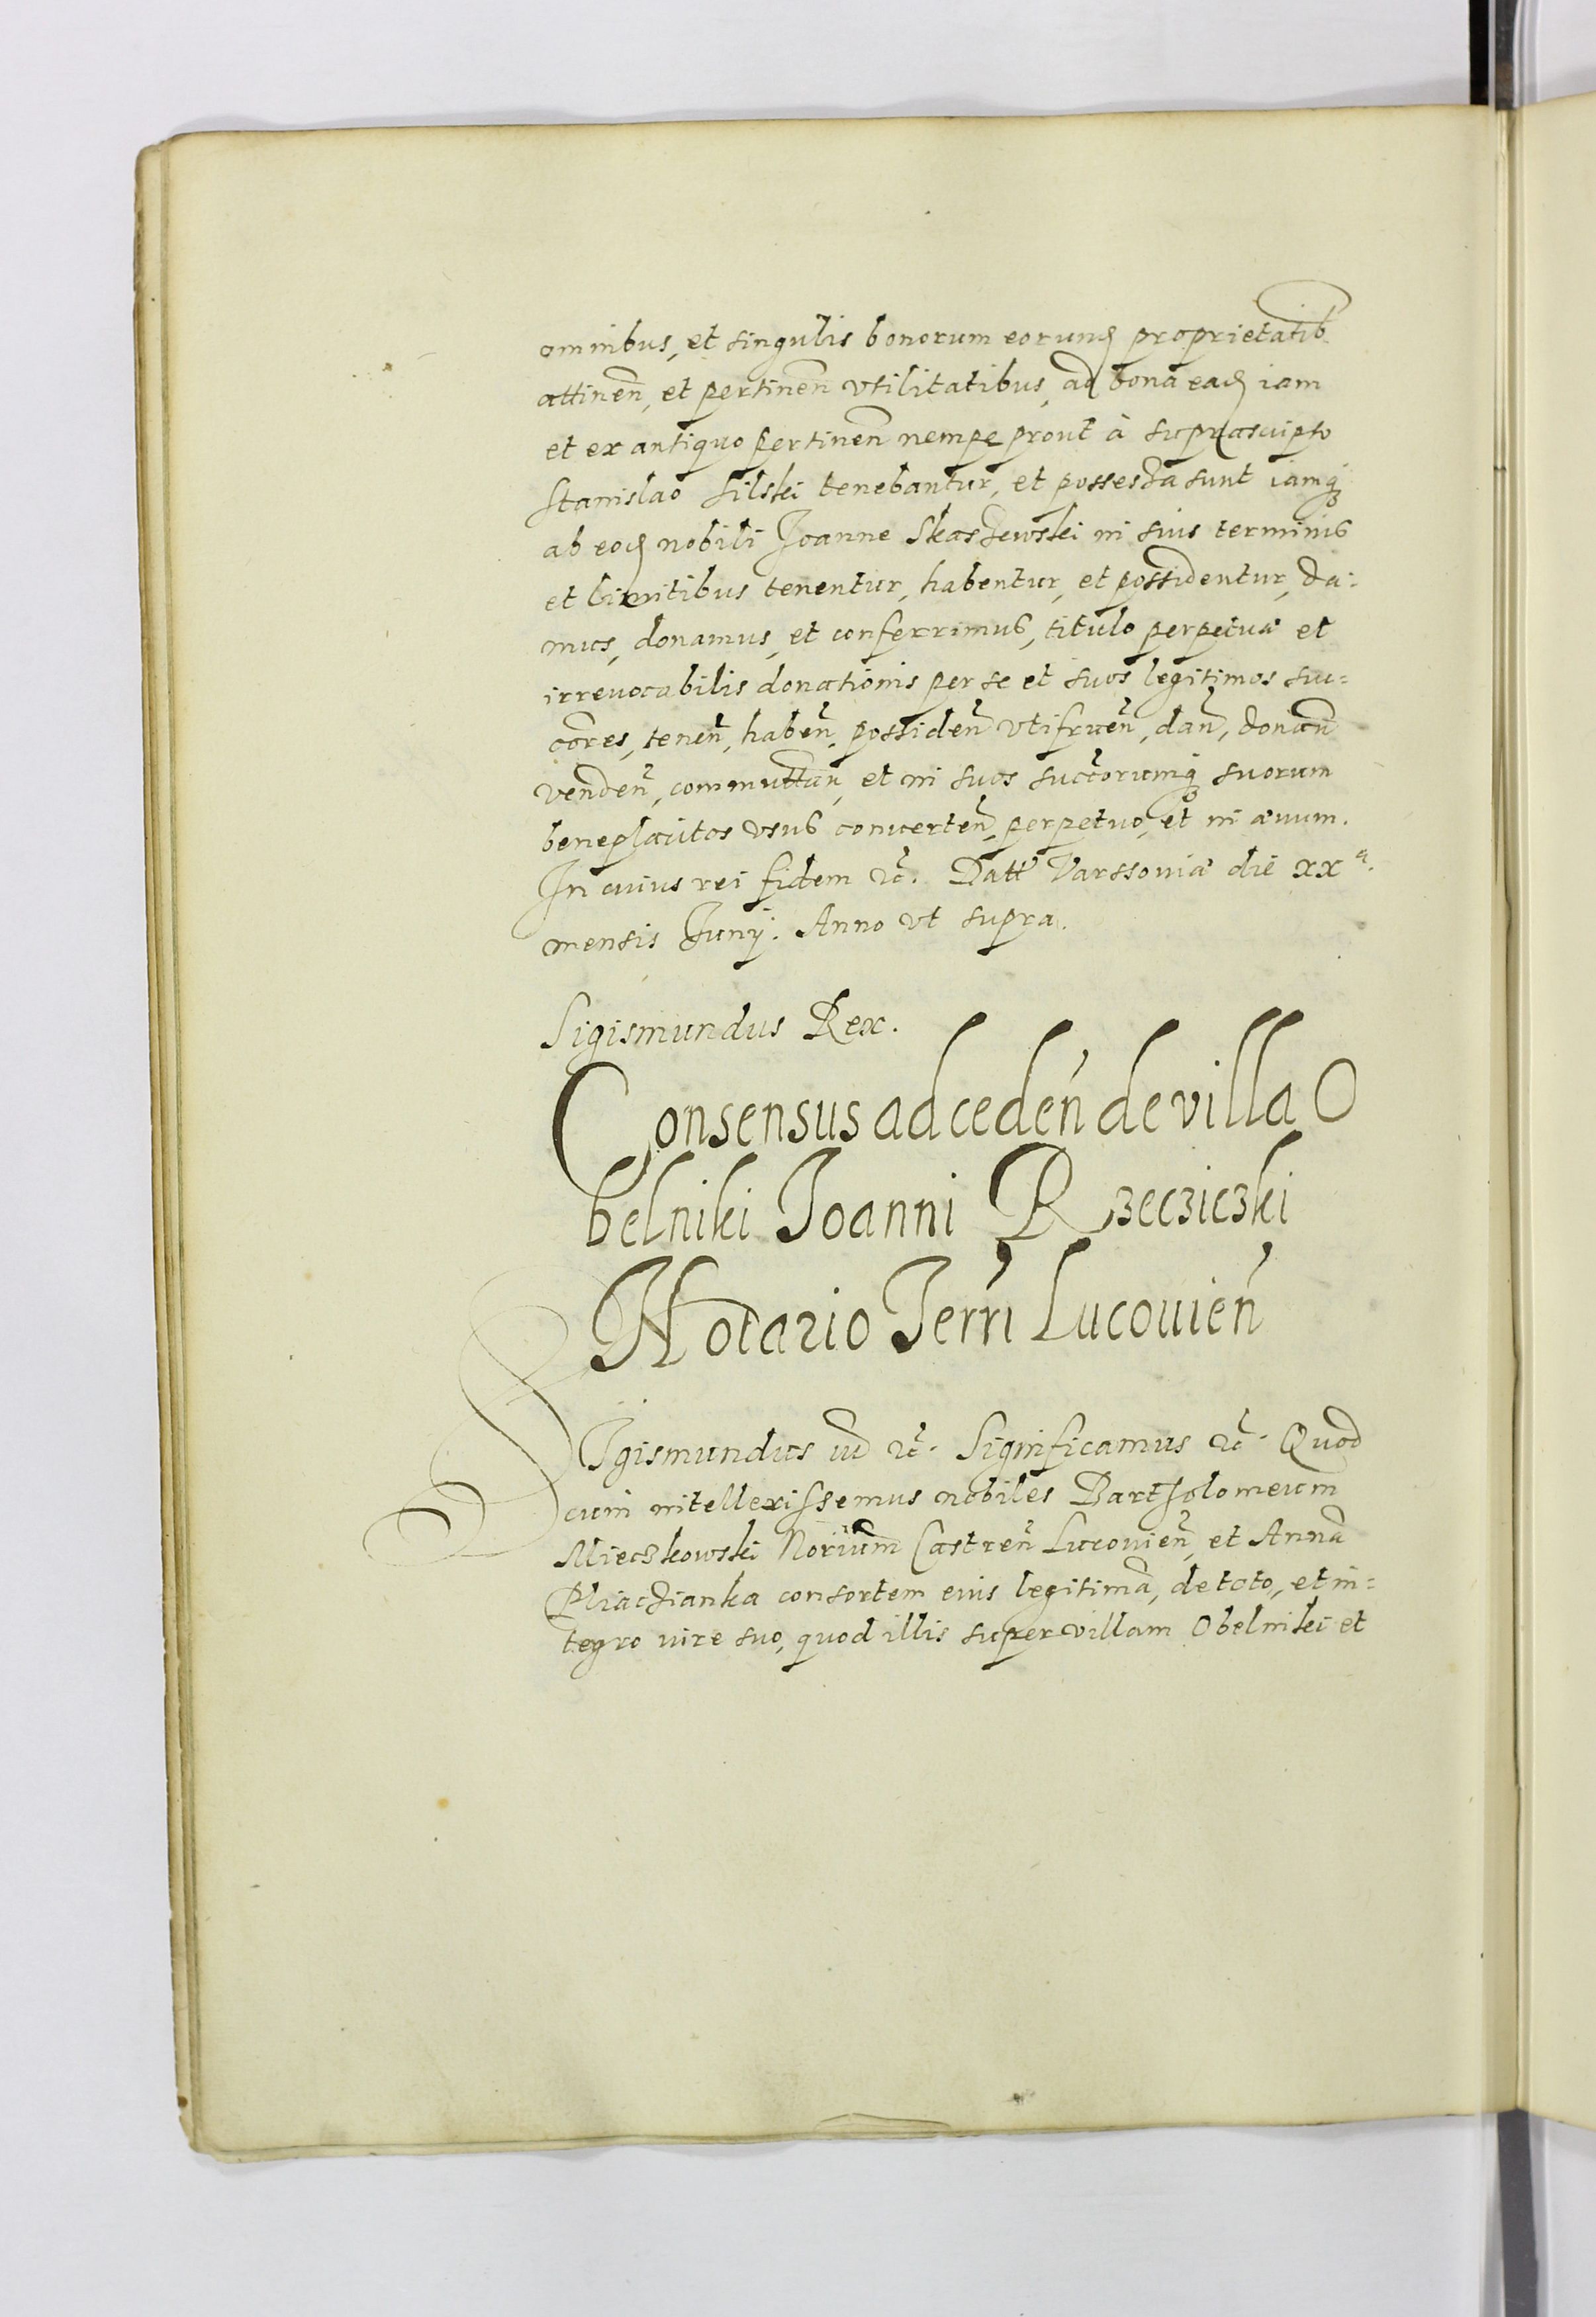 omnibus, et singulis bonorum eorund proprietatib
attinen̄, et pertinen̄ vtilitatibus, ad bona ead iam
et ex antiquo pertinen̄ nempe prout à suprascripto
Stanislao Silski tenebantur, et possessa sunt iamq
ab eod nobili Joanne Skaszewski in suis terminis
et limitibus tenentur, habentur, et possidentur, da-
mus, donamus, et conferrimus, titulo perpetuæ et
irreuocabilis donationis per se et suos legitimos suc=
cores, tenen̄, haben̄, possiden̄ vtifruen̄, dan̄, donan̄
venden̄, commuttan̄, et in suos succorumq suorum
beneplacitos vsus conuerten̄, perpetuo, et in æuum.
In cuius rei fidem &c. Datt Varssouiæ die xx a.
mensis Junij. Anno vt supra.
Sigismundus Rex.
Consensus ad ceden̄ de villa O
belniki Joanni Rzecziczki
Notario Terri Lucouien̄
SIgismundus iii &c. Significamus &c. Quod
cum intellexissemus nobiles Bartholomeum
Mieczkowski Norium Castren̄ Lucouien̄, et Annā
Pliaczianka consortem eius legitimā, de toto, et in=
tegro iure suo, quod illis super villam Obelniki et